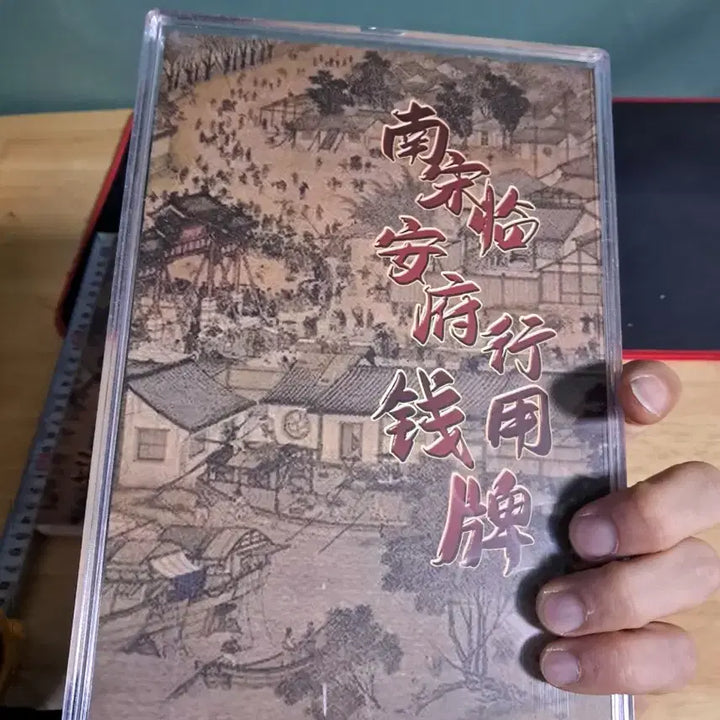 南宋临
安府行用
钱牌